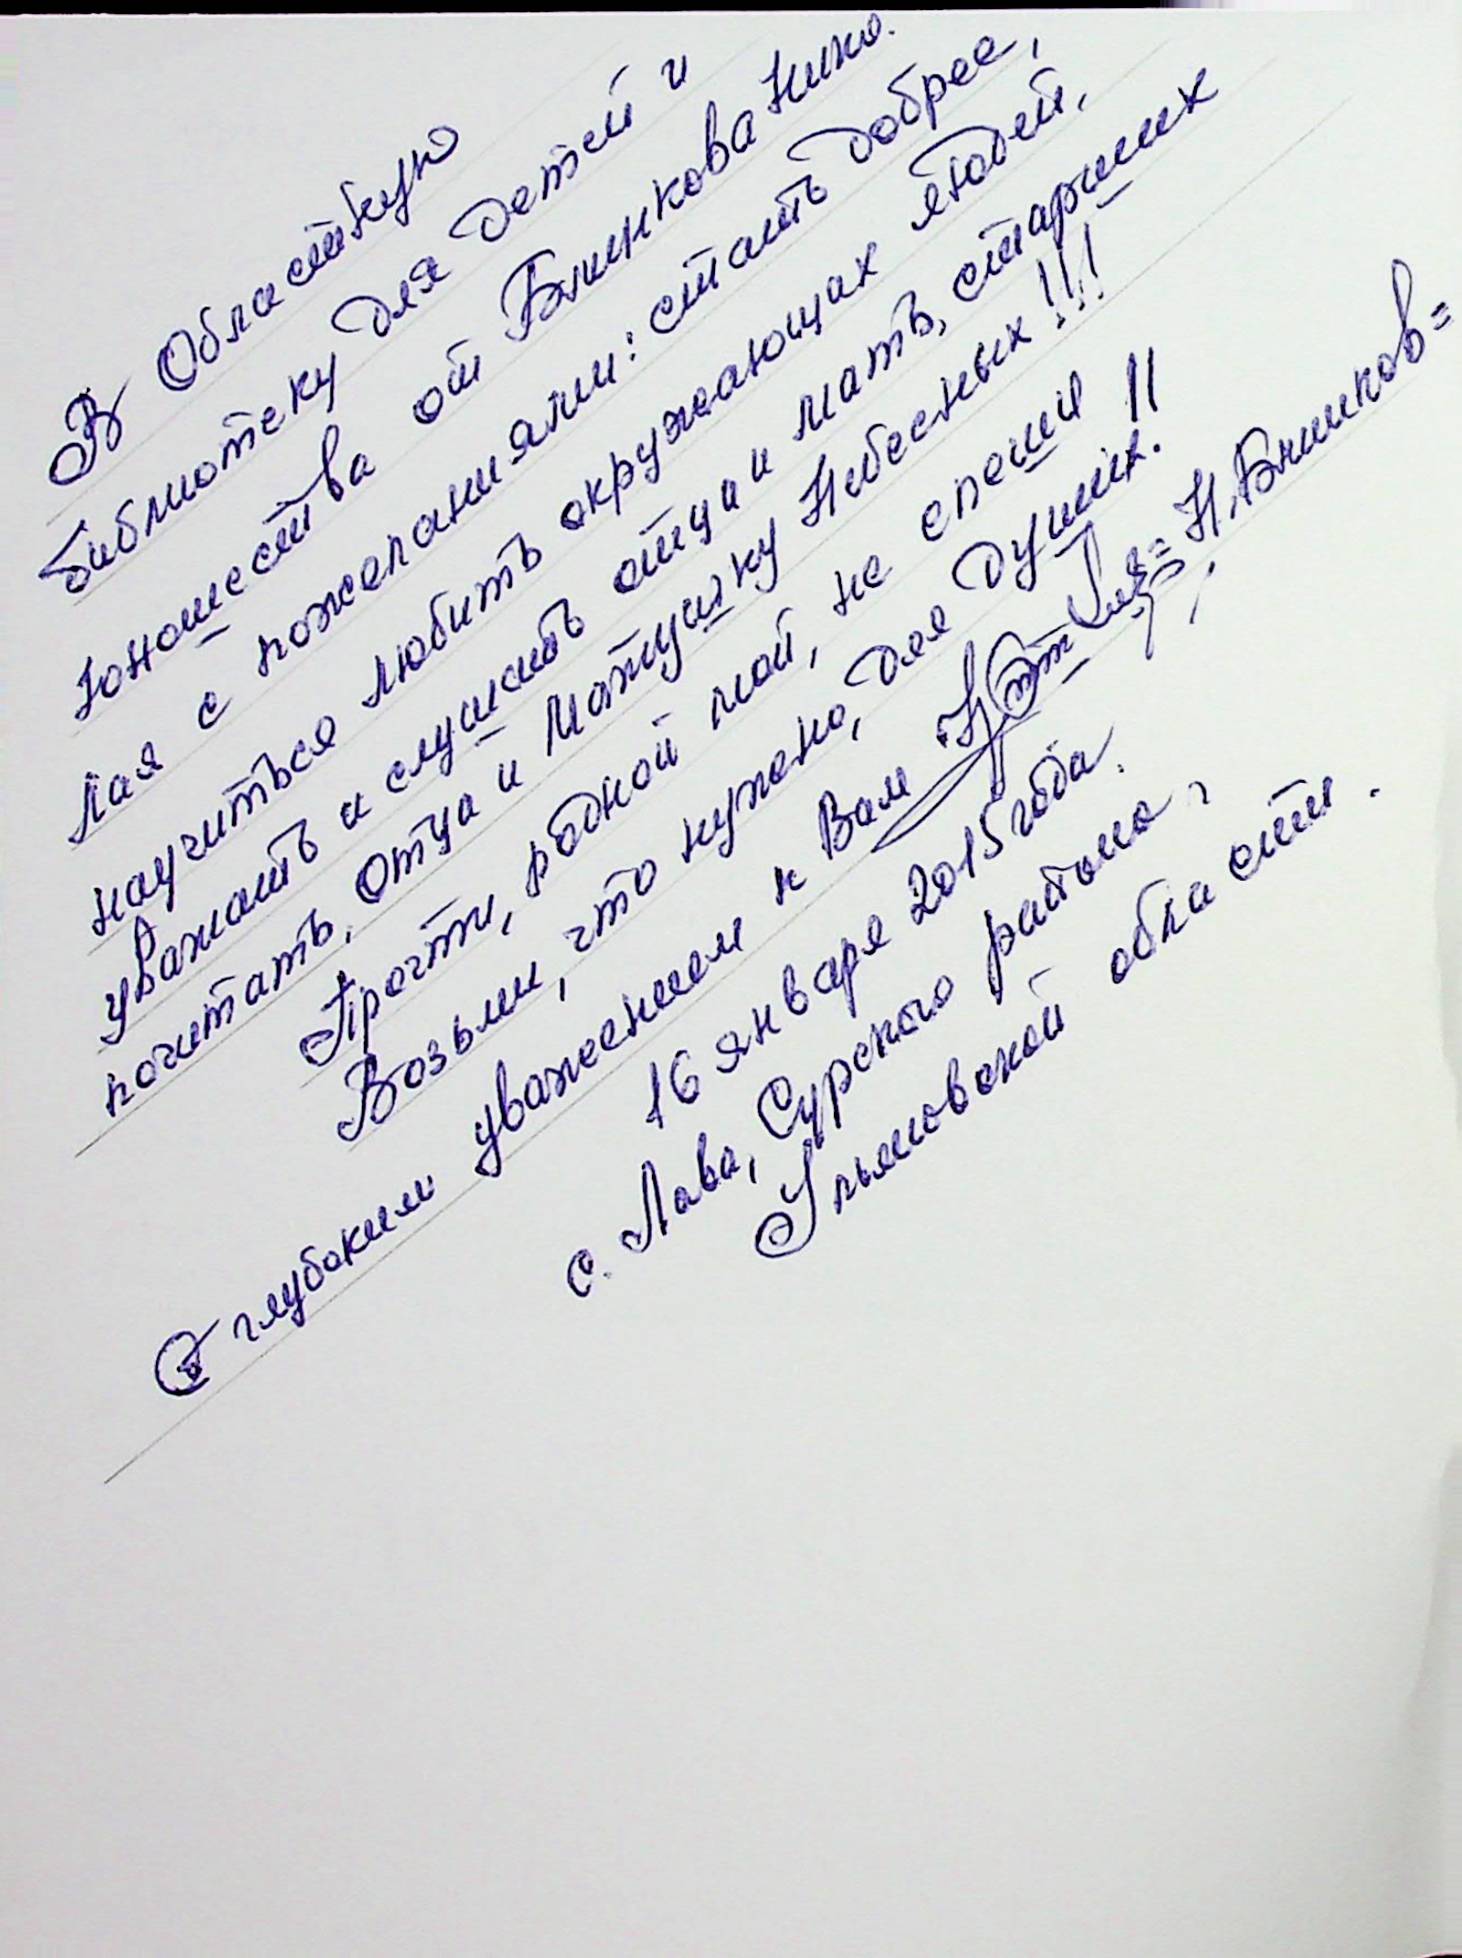 В Областную
библиотеку для детей и
юношества от Блинкова Нико-
лая с пожеланиями: стать добрее,
научиться любить окружающих людей,
уважать и слушать отца и мать, старших
почитать, Отца и Матушку Небесных!!!
Прочти, родной мой, не спеши
Возьми, что нужно, для души!!
С глубоким уважением к Вам =Н.Блинков=
16 января 2015 года.
с. Лава, Сурского района,
Ульяновской области.